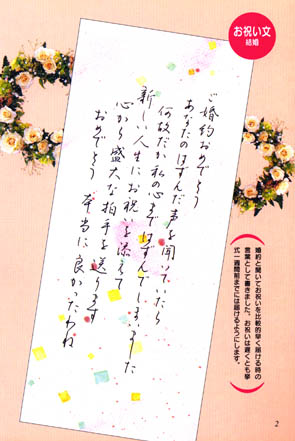 お祝い文
結婚
ご婚約おめでとう
あなたのはずんだ声を聞いていたら
何故だか私の心まではずんでしまいました
新しい人生にお祝いを添えて
心から盛大な拍手を送ります
おめでとう　本当に良かったわね
婚約と聞いてお祝いを比較的早く届ける時の
言葉として書きました。お祝いは遅くとも挙
式一週間前までには届けるようにします。
2